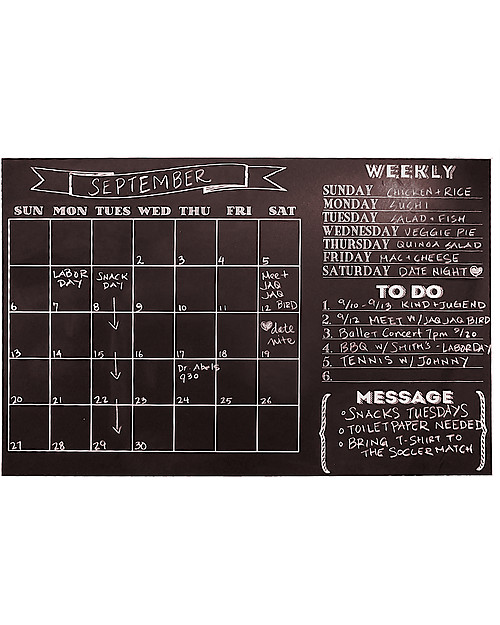 SEPTEMBER
SUN MON TUES WED THU FRI SAT
2 3 4 5
LABOR DAY
SNACK DAY
Meet JAQ JAQ BIRD
6 7 8 9 10 11 12
date nite
13 14 15 16 17 18 19
Dr. Abels 930
20 21 22 23 24 25 26
27 28 29 30
WEEKLY
SUNDAY CHICKEN + RICE
MONDAY SUCHI
TUESDAY SALAD + FISH
WEDNESDAY VEGGIE PIE
THURSDAY QUINOA SALAD
FRIDAY MAC + CHEESE
SATURDAY DATE NIGHT
TO DO
1. 9/10 - 9/13 KIND + JUGEND
2. 9/12 MEET W/ JAQ JAQ BIRD
3. Ballet Concert 7pm 9/20
4. BBQ W/ SMITHS - LABOR DAY
5. TENNIS W/ JOHNNY
6.
MESSAGE
SNACKS TUESDAYS
TOILET PAPER NEEDED
BRING T-SHIRT TO
THE SOCCER MATCH